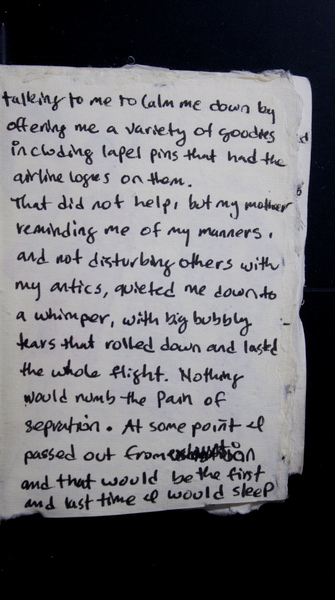 talking to me to calm me down by
offering me a variety of goodies
including lapel pins that had the
airline logos on them.
That did not help, but my mother
reminding me of my manners,
and not disturbing others with
my antics, quieted me down to
a whimper, with big bubbly
tears that rolled down and lasted
the whole flight. Nothing
would numb the Pain of
sepration. At some point I
passed out from
and that would be the first
and last time I would sleep